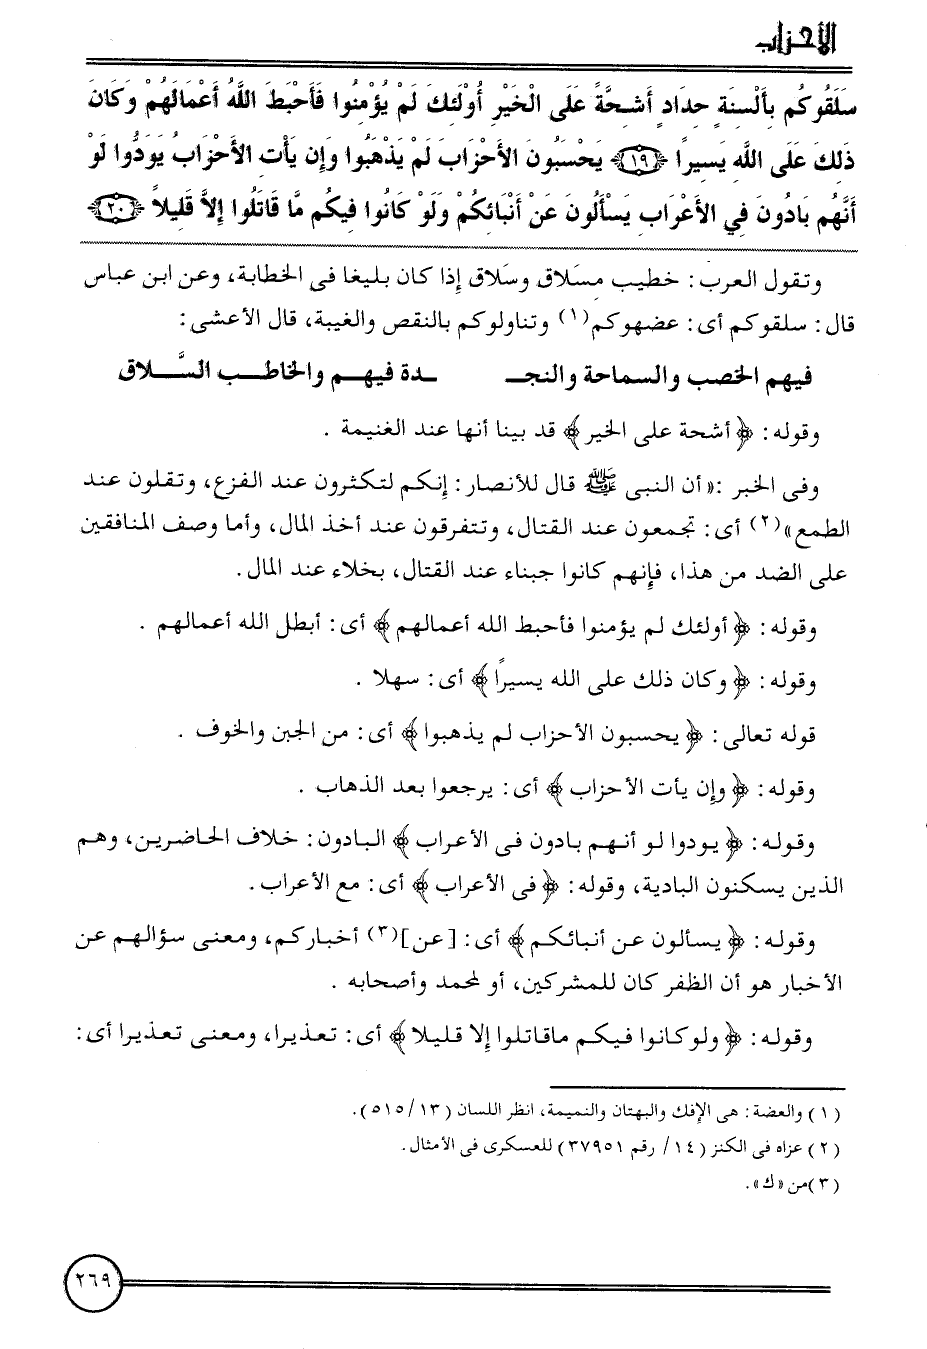 الأحزاب
سَلَقُوكُم بِأَلْسِنَةٍ حِدَادٍ أَشِحَّةً عَلَى الْخَيْرِ أُوْلَئِكَ لَمْ يُؤْمِنُوا فَأَحْبَطَ اللَّهُ أَعْمَالَهُمْ وَكَانَ
ذَلِكَ عَلَى اللَّهِ يَسِيرًا ﴿١٩﴾ يَحْسَبُونَ الأَحْزَابَ لَمْ يَذْهَبُوا وَإِن يَأْتِ الأَحْزَابُ يَوَدُّوا لَوْ
أَنَّهُم بَادُونَ فِي الأَعْرَابِ يَسْأَلُونَ عَنْ أَنْبَائِكُمْ وَلَوْ كَانُوا فِيكُم مَّا قَاتَلُوا إِلاَّ قَلِيلاً ﴿٢٠﴾
وتقول العرب: خطيب مسَلاق وسَلاق إذا كان بليغا فى الخطابة، وعن ابن عباس
قال: سلقوكم أى: عضهوكم(١) وتناولوكم بالنقص والغيبة، قال الأعشى:
فيهم الخصب والسماحة والنجـ ـدة فيهـم والخاطـب السَّـلاق
وقوله: ﴿أشحة على الخير﴾ قد بينا أنها عند الغنيمة .
وفى الخبر :«أن النبى ﷺ قال للأنصار: إنكم لتكثرون عند الفزع، وتقلون عند
الطمع»(٢) أى: تجمعون عند القتال، وتتفرقون عند أخذ المال، وأما وصف المنافقين
على الضد من هذا، فإنهم كانوا جبناء عند القتال، بخلاء عند المال.
وقوله: ﴿أولئك لم يؤمنوا فأحبط الله أعمالهم﴾ أى: أبطل الله أعمالهم .
وقوله: ﴿وكان ذلك على الله يسيرًا﴾ أى: سهلا .
قوله تعالى: ﴿يحسبون الأحزاب لم يذهبوا﴾ أى: من الجبن والخوف .
وقوله: ﴿وإن يأت الأحزاب﴾ أى: يرجعوا بعد الذهاب .
وقوله: ﴿يودوا لو أنهم بادون فى الأعراب﴾ البادون: خلاف الحاضرين، وهم
الذين يسكنون البادية، وقوله: ﴿فى الأعراب﴾ أى: مع الأعراب.
وقوله: ﴿يسألون عن أنبائكم﴾ أى: [عن](٣) أخباركم، ومعنى سؤالهم عن
الأخبار هو أن الظفر كان للمشركين، أو لمحمد وأصحابه .
وقوله: ﴿ولو كانوا فيكم ماقاتلوا إلا قليلا﴾ أى: تعذيرا، ومعنى تعذيرا أى:
(١) والعضة: هى الإفك والبهتان والنميمة، انظر اللسان (١٣/ ٥١٥).
(٢) عزاه فى الكنز (١٤/ رقم ٣٧٩٥١) للعسكرى فى الأمثال.
(٣)من «ك».
٢٦٩